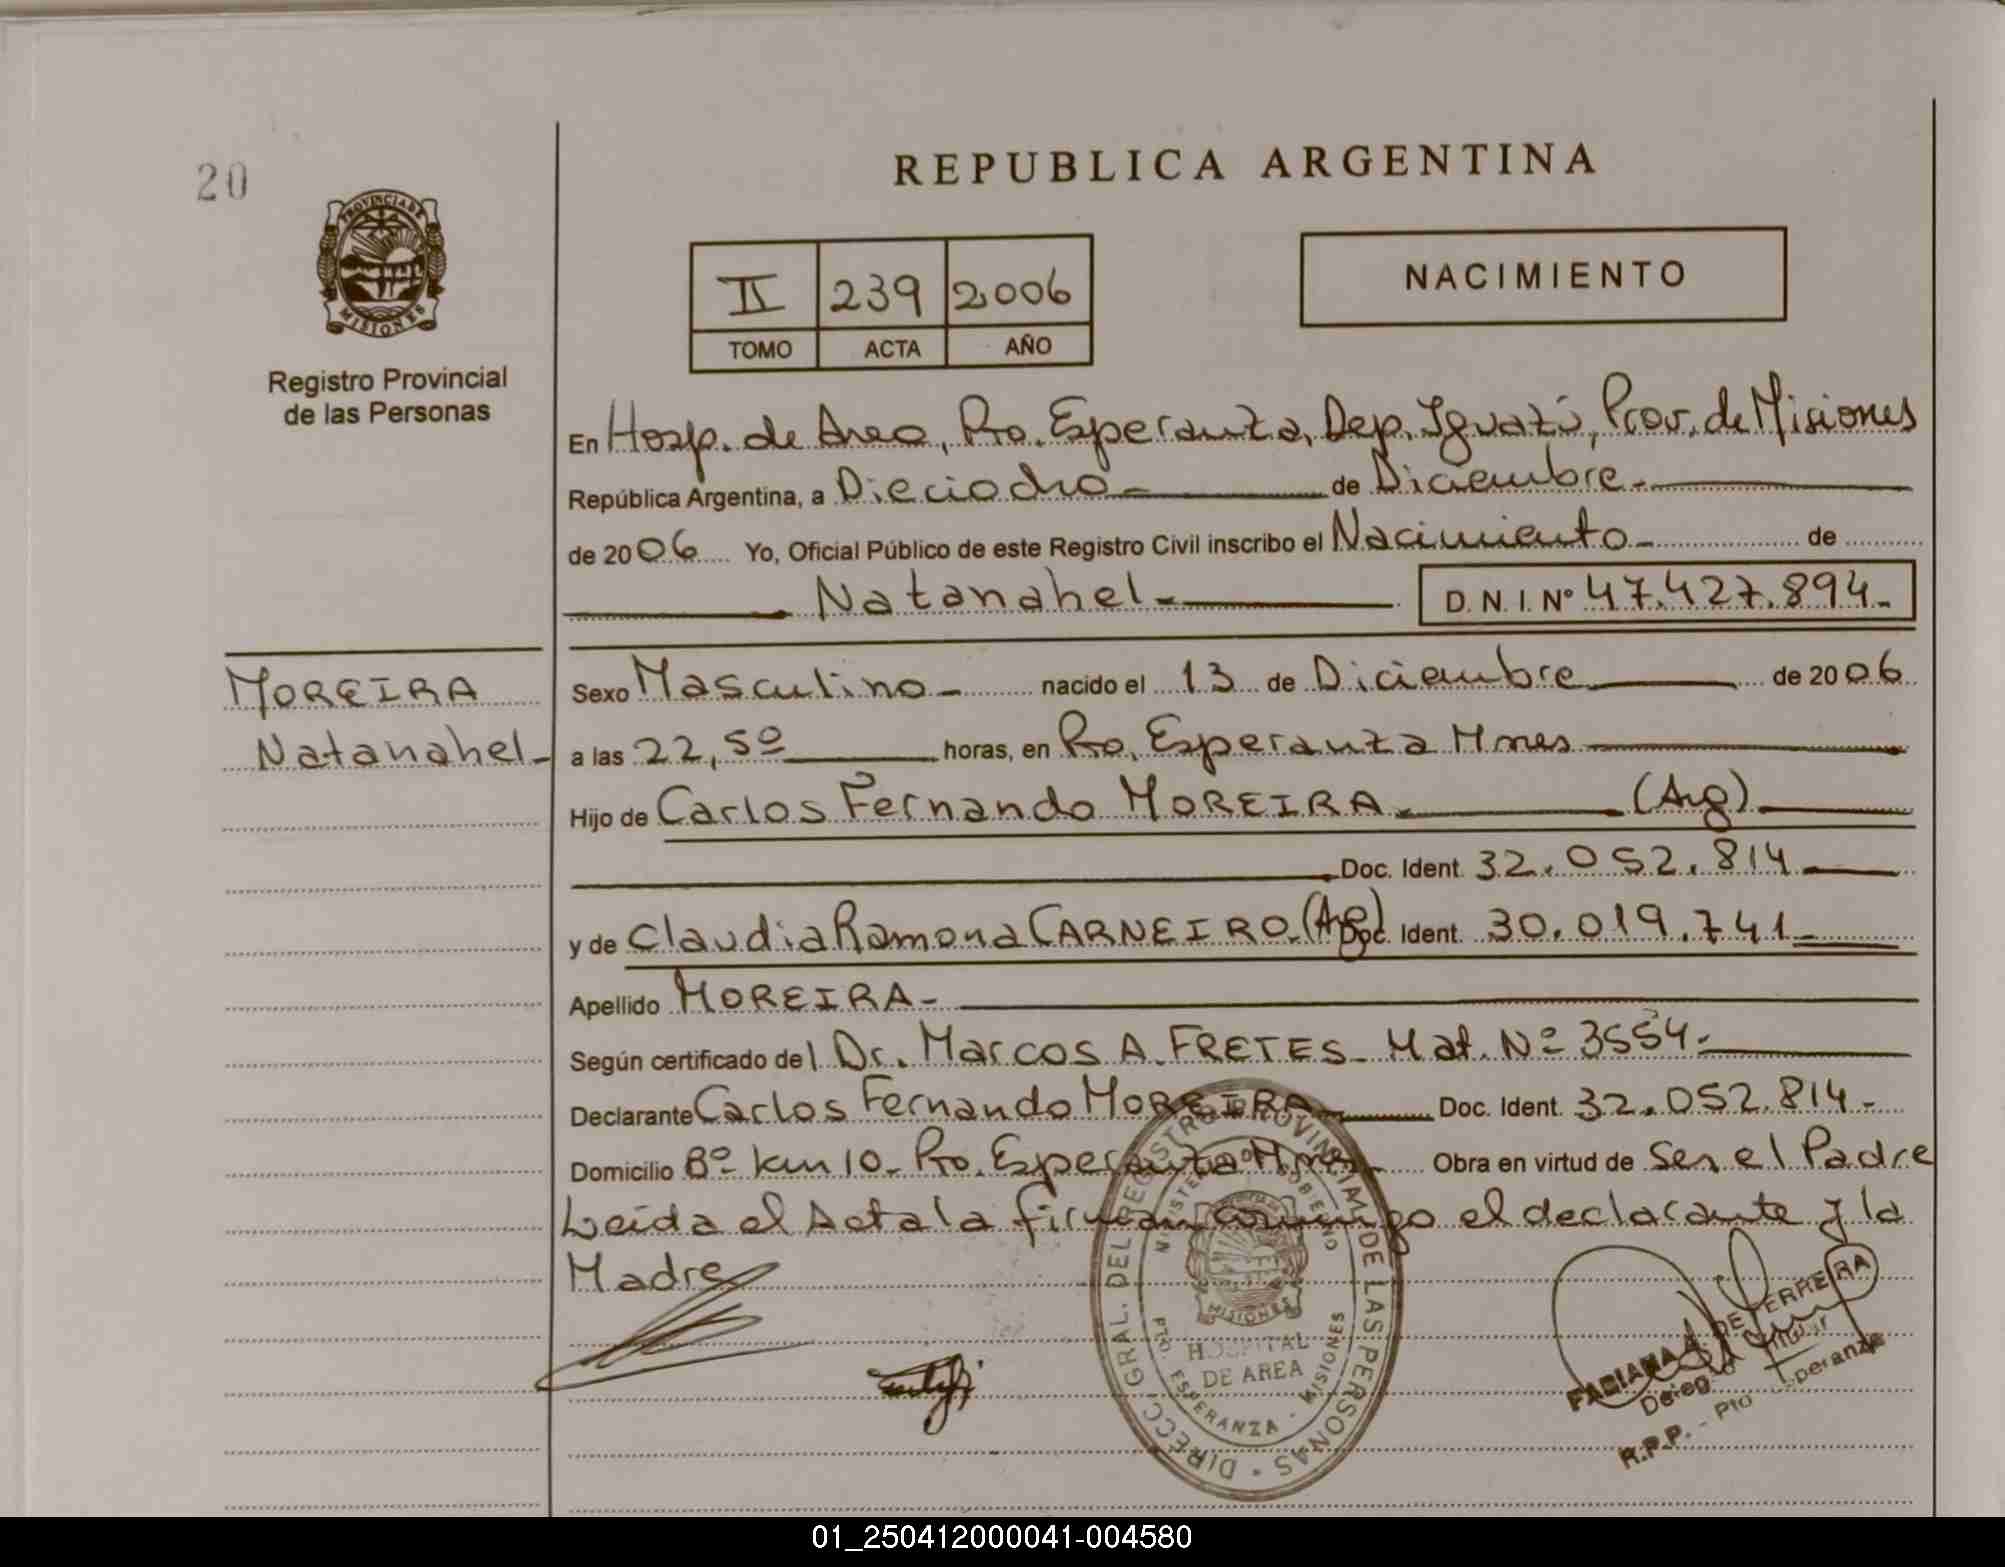 20
PROVINCIA DE
MISIONES
Registro Provincial
de las Personas
REPUBLICA ARGENTINA
II 239 2006
TOMO ACTA AÑO
NACIMIENTO
En Hosp. de Area, Pto. Esperanza, Dep. Iguazú, Prov. de Misiones
República Argentina, a Dieciocho - de Diciembre.
de 2006 Yo, Oficial Público de este Registro Civil inscribo el Nacimiento - de
Natanahel - D.N.I. Nº 47.427.894 -
MOREIRA
Natanahel -
Sexo Masculino - nacido el 13 de Diciembre de 2006
a las 22,50 horas, en Pto. Esperanza Mnes
Hijo de Carlos Fernando MOREIRA. (Arg)
Doc. Ident. 32.052.814
y de Claudia Ramona CARNEIRO. (Arg) Doc. Ident. 30.019.741
Apellido MOREIRA -
Según certificado del Dr. Marcos A. FRETES - Mat. Nº 3554.
Declarante Carlos Fernando MOREIRA Doc. Ident. 32.052.814 -
Domicilio Bº km 10 - Pto. Esperanza Mnes. Obra en virtud de Ser el Padre
Leída el Acta la firman conmigo el declarante y la
Madre
DIRECC. GRAL. DEL REGISTRO PROVINCIAL DE LAS PERSONAS
MINISTERIO DE GOBIERNO
MISIONES
HOSPITAL
DE AREA
PTO. ESPERANZA - MISIONES
FABIANA A. DE FERREYRA
R.P.P. - Pto Esperanza
01_250412000041-004580